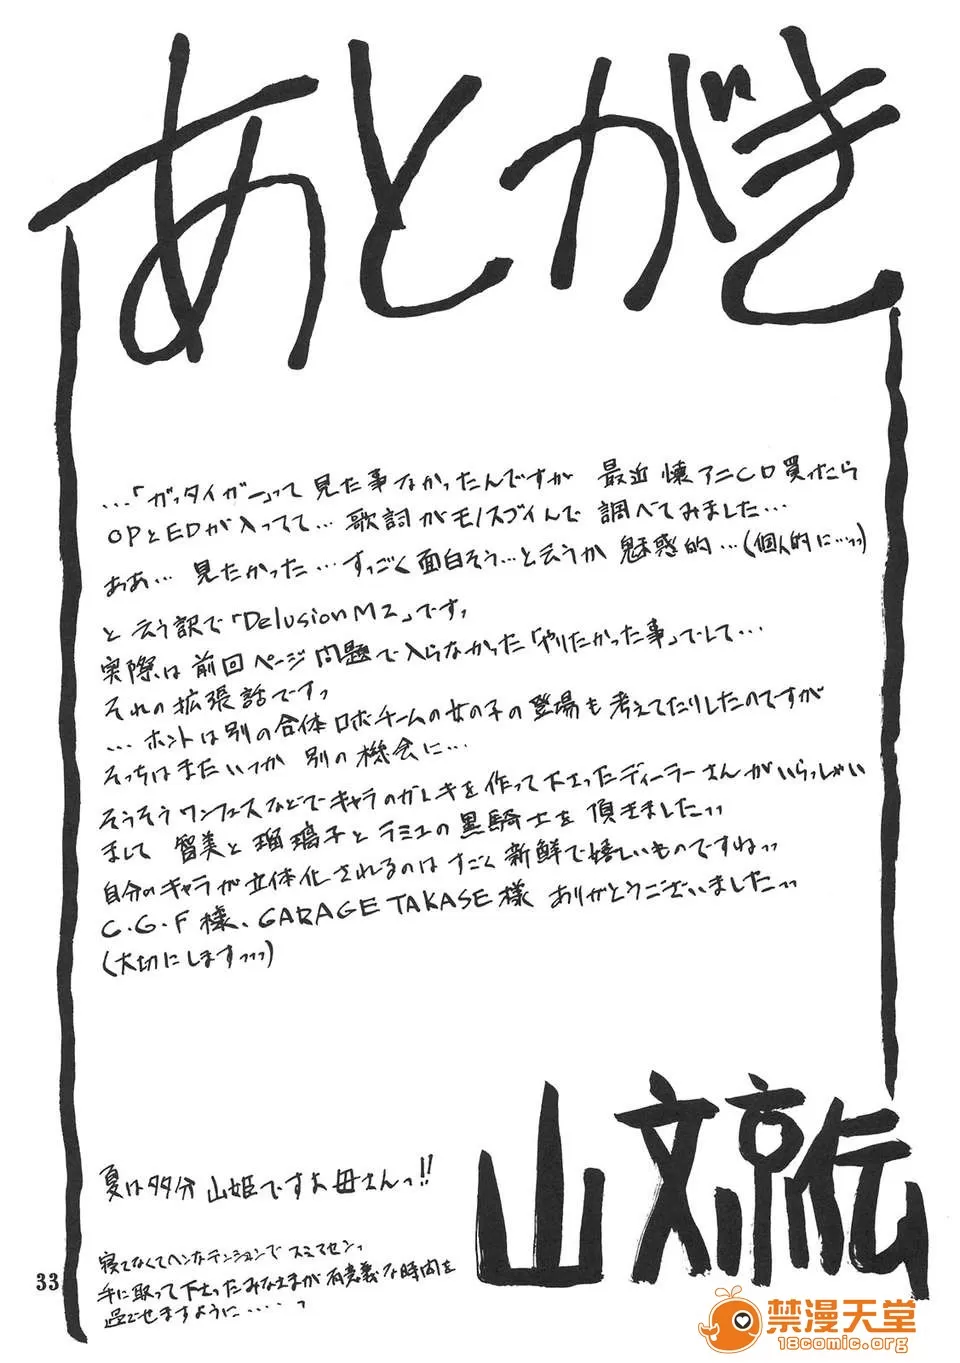 あとがき
…「ガッタイガー」って見た事なかったんですが 最近 懐アニCD買ったら
OPとEDが入ってて… 歌詞がモノスゴイんで 調べてみました…
ああ… 見たかった…すっごく面白そう…と云うか 魅惑的…(個人的に…ッッ)
と云う訳で「Delusion M2」ですッ
実際は前回ページ問題で入らなかった「やりたかった事」でして…
それの拡張話ですッ
…ホントは別の合体ロボチームの女の子の登場も考えてたりしたのですが
そっちはまたいつか 別の機会に…
そうそうワンフェスなどでキャラのガレキを作って下さったディーラーさんがいらっしゃい
まして 智美と瑠璃子とラミュの黒騎士を 頂きましたッッ
自分のキャラが立体化されるのはすごく新鮮で嬉しいものですねッッ
C.G.F様、GARAGE TAKASE様 ありがとうございましたッッ
(大切にしますッッッ)
夏は多分 山姫ですよ母さんっ!!
山文京伝
寝てなくてヘンなテンションで スミマセンッ
手に取って下さったみなさまが有意義な時間を
過ごせますように……ッ
33
禁漫天堂
18comic.org